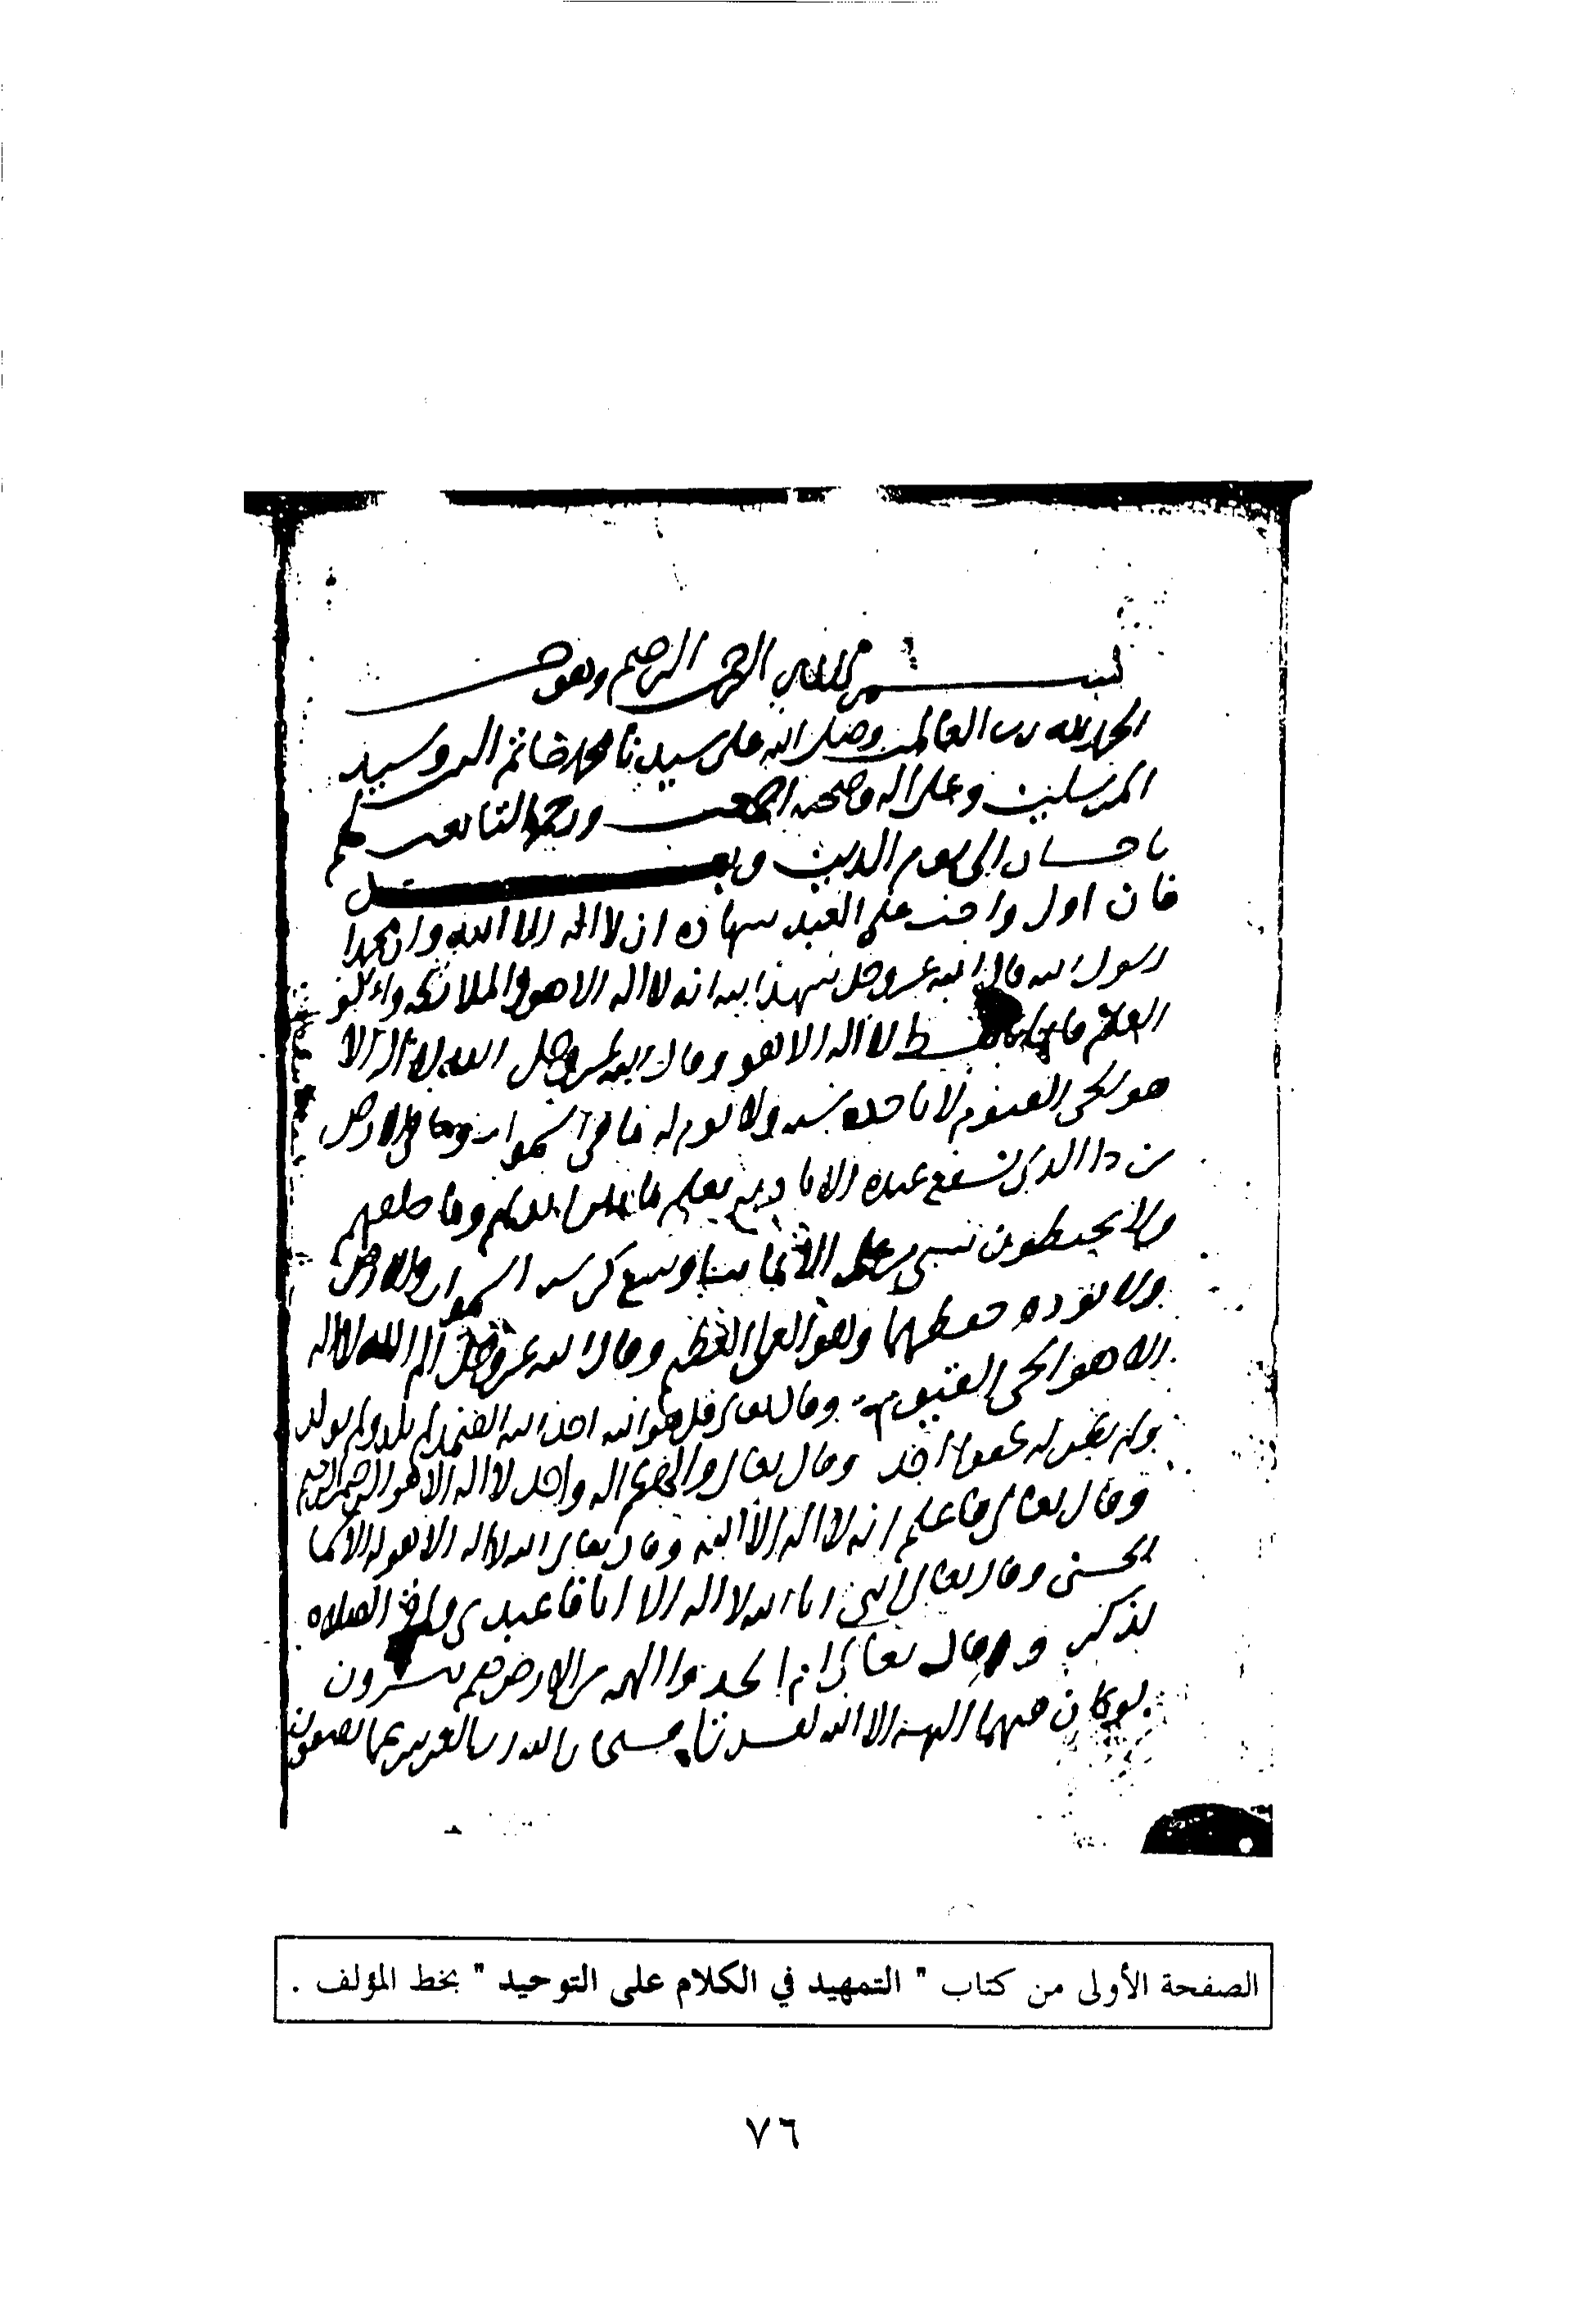 بسم الله الرحمن الرحيم وهو حسبي
الحمد لله رب العالمين وصلى الله على سيدنا محمد خاتم النبيين وسيد
المرسلين وعلى اله وصحبه اجمعين والتابعين لهم
باحسان الى يوم الدين وبعد
فان اول واجب على العبد شهادة ان لا اله الا الله وان محمدا
رسول الله قال الله عز وجل شهد الله انه لا اله الا هو والملائكة واولو
العلم قائما بالقسط لا اله الا هو وقال الله عز وجل الله لا اله الا
هو الحي القيوم لا تاخذه سنة ولا نوم له ما في السموات وما في الارض
من ذا الذي يشفع عنده الا باذنه يعلم ما بين ايديهم وما خلفهم
ولا يحيطون بشيء من علمه الا بما شاء وسع كرسيه السموات والارض
ولا يؤده حفظهما وهو العلي العظيم وقال الله عز وجل الم الله لا اله
الا هو الحي القيوم وقال تعالى قل هو الله احد الله الصمد لم يلد ولم يولد
ولم يكن له كفوا احد وقال تعالى والهكم اله واحد لا اله الا هو الرحمن الرحيم
وقال تعالى فاعلم انه لا اله الا الله وقال تعالى الله لا اله الا هو له الاسما
الحسنى وقال تعالى انني انا الله لا اله الا انا فاعبدني واقم الصلاة
لذكري وقال تعالى ام اتخذوا الهة من الارض هم ينشرون
لو كان فيهما الهة الا الله لفسدتا فسبحان الله رب العرش عما يصفون
الصفحة الأولى من كتاب " التمهيد في الكلام على التوحيد " بخط المؤلف .
٧٦